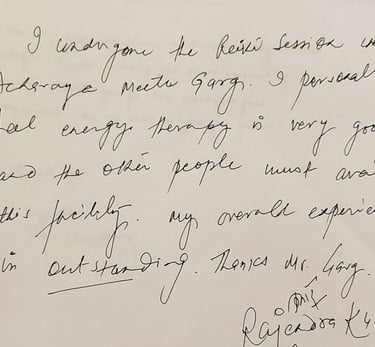 I undergone the Reiki Session
Acharaya Meetu Garg. I personal
energy therapy is very goo
and the other people must avai
this facility. my overall experie
is outstanding. Thanks Mr. Garg.
Rajendra Ku